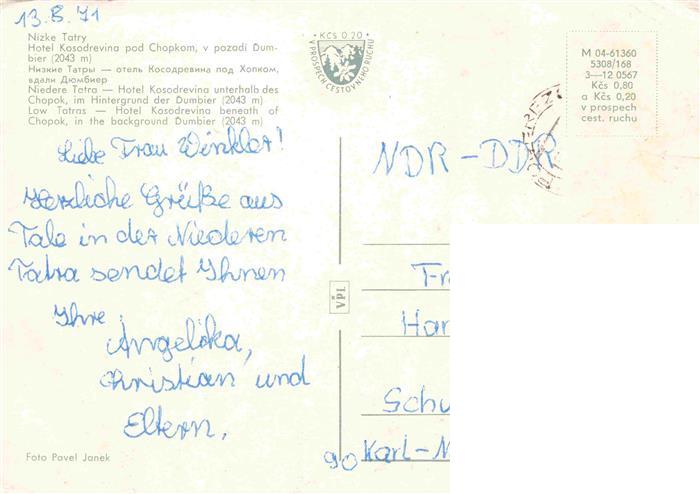 13.8.71
Nízke Tatry
Hotel Kosodrevina pod Chopkom, v pozadí Ďum-
bier (2043 m)
Низкие Татры — отель Косодревина под Хопком,
вдали Дюмбиер
Niedere Tatra — Hotel Kosodrevina unterhalb des
Chopok, im Hintergrund der Dumbier (2043 m)
Low Tatras — Hotel Kosodrevina beneath of
Chopok, in the background Dumbier (2043 m)
KČS 0.20
V PROSPECH CESTOVNÉHO RUCHU
M 04-61360
5308/168
3—12 0567
Kčs 0,80
a Kčs 0,20
v prospech
cest. ruchu
Liebe Frau Winkler!
Herzliche Grüße aus
Tale in der Niederen
Tatra sendet Ihnen
Ihre
Angelika,
Christian und
Eltern.
NDR-DDR
VPL
Fr
Har
Schu
90 Karl-M
Foto Pavel Janek